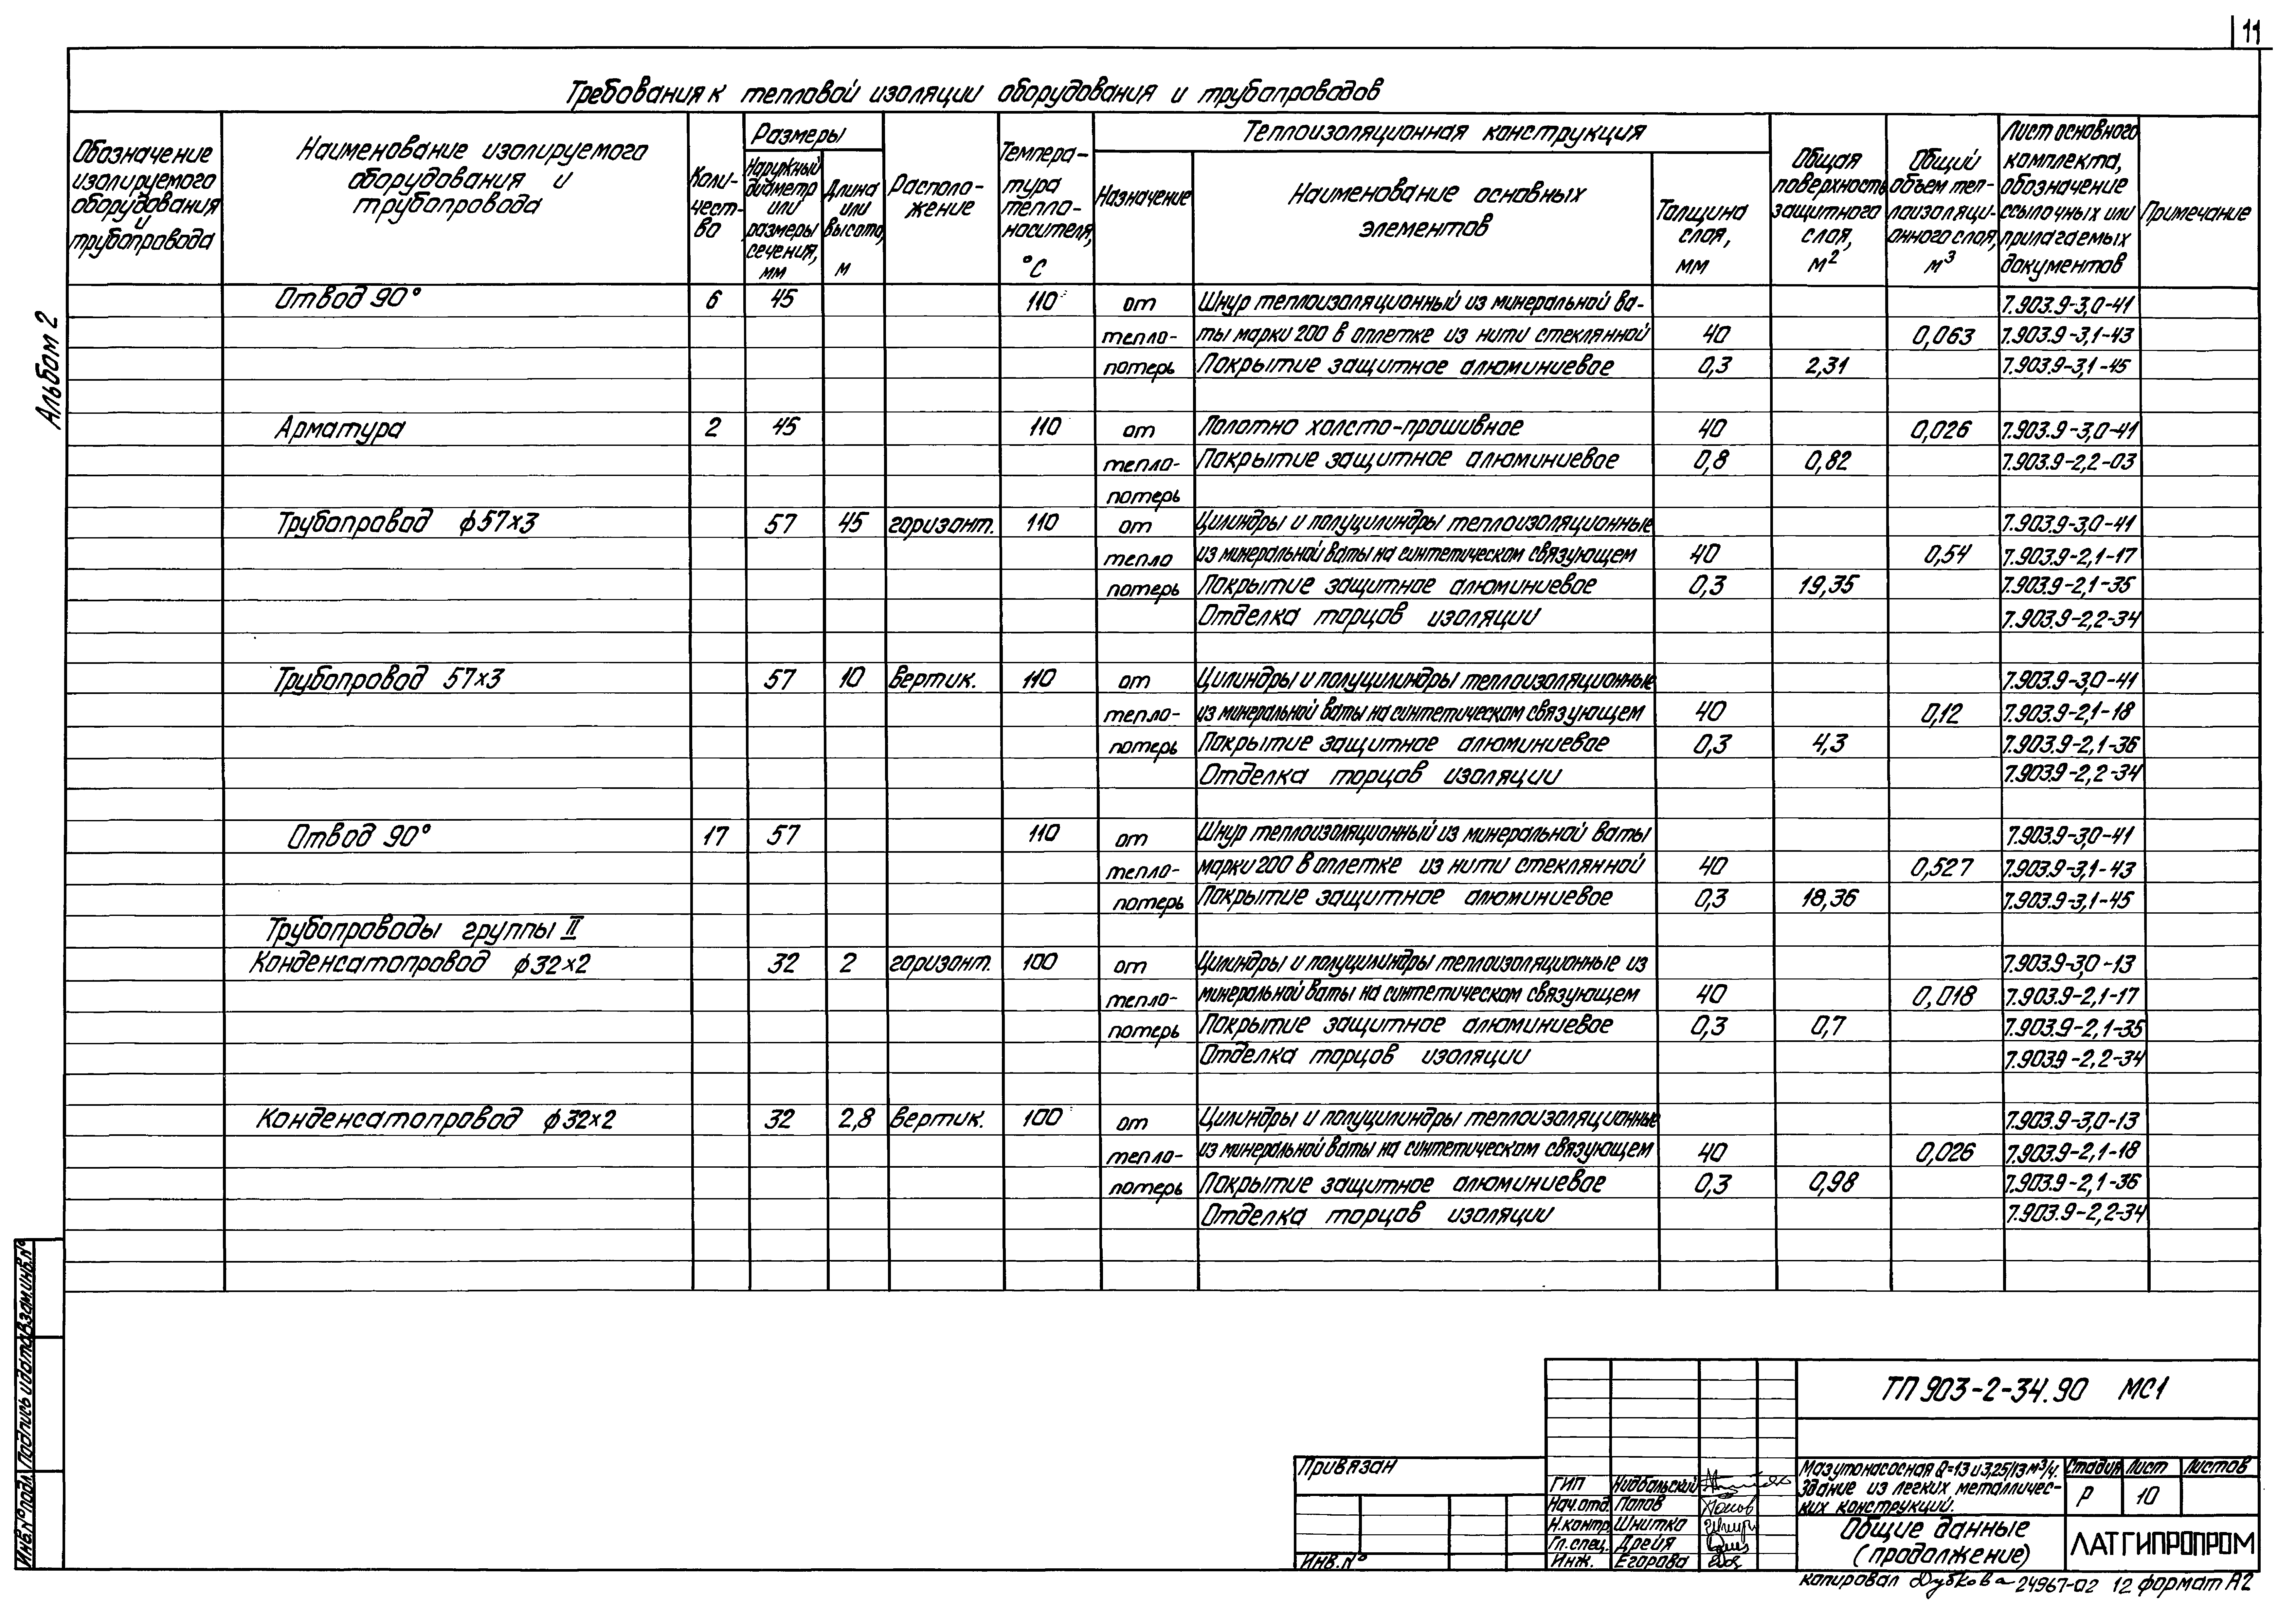 11
Альбом 2
Требования к тепловой изоляции оборудования и трубопроводов
Обозначение изолируемого оборудования и трубопровода
Наименование изолируемого оборудования и трубопровода
Коли-чест-во
Размеры
Наружный диаметр или размеры сечения, мм
Длина или высота, м
Располо-жение
Темпера-тура тепло-носителя, °С
Теплоизоляционная конструкция
Назначение
Наименование основных элементов
Толщина слоя, мм
Общая поверхность защитного слоя, м²
Общий объем теп-лоизоляци-онного слоя, м³
Лист основного комплекта, обозначение ссылочных или прилагаемых документов
Примечание
Отвод 90° 6 45 110 от Шнур теплоизоляционный из минеральной ва- 7.903.9-3,0-41
тепло- ты марки 200 в оплетке из нити стеклянной 40 0,063 7.903.9-3,1-43
потерь Покрытие защитное алюминиевое 0,3 2,31 7.903.9-3,1-45
Арматура 2 45 110 от Полотно холсто-прошивное 40 0,026 7.903.9-3,0-41
тепло- Покрытие защитное алюминиевое 0,8 0,82 7.903.9-2,2-03
потерь
Трубопровод ф57×3 57 45 горизонт. 110 от Цилиндры и полуцилиндры теплоизоляционные 7.903.9-3,0-41
тепло из минеральной ваты на синтетическом связующем 40 0,54 7.903.9-2,1-17
потерь Покрытие защитное алюминиевое 0,3 19,35 7.903.9-2,1-35
Отделка торцов изоляции 7.903.9-2,2-34
Трубопровод 57×3 57 10 вертик. 110 от Цилиндры и полуцилиндры теплоизоляционные 7.903.9-3,0-41
тепло- из минеральной ваты на синтетическом связующем 40 0,12 7.903.9-2,1-18
потерь Покрытие защитное алюминиевое 0,3 4,3 7.903.9-2,1-36
Отделка торцов изоляции 7.903.9-2,2-34
Отвод 90° 17 57 110 от Шнур теплоизоляционный из минеральной ваты 7.903.9-3,0-41
тепло- марки 200 в оплетке из нити стеклянной 40 0,527 7.903.9-3,1-43
потерь Покрытие защитное алюминиевое 0,3 18,36 7.903.9-3,1-45
Трубопроводы группы II
Конденсатопровод ф32×2 32 2 горизонт. 100 от Цилиндры и полуцилиндры теплоизоляционные из 7.903.9-3,0-13
тепло- минеральной ваты на синтетическом связующем 40 0,018 7.903.9-2,1-17
потерь Покрытие защитное алюминиевое 0,3 0,7 7.903.9-2,1-35
Отделка торцов изоляции 7.903.9-2,2-34
Конденсатопровод ф32×2 32 2,8 вертик. 100 от Цилиндры и полуцилиндры теплоизоляционные 7.903.9-3,0-13
тепло- из минеральной ваты на синтетическом связующем 40 0,026 7.903.9-2,1-18
потерь Покрытие защитное алюминиевое 0,3 0,98 7.903.9-2,1-36
Отделка торцов изоляции 7.903.9-2,2-34
Инв.№ подл. Подпись и дата Взам.инв.№
Привязан
Инв.№
ГИП Нидбальский
Нач.отд. Попов
Н.контр. Шнитко
Гл.спец. Дрейя
Инж. Егорова
ТП 903-2-34.90 МС1
Мазутонасосная Q=13 и 3,25/13 м³/ч.
Здание из легких металличес-
ких конструкций.
Стадия Лист Листов
Р 10
Общие данные
(продолжение)
ЛАТГИПРОПРОМ
копировал Дубкова 24967-02 12 формат А2